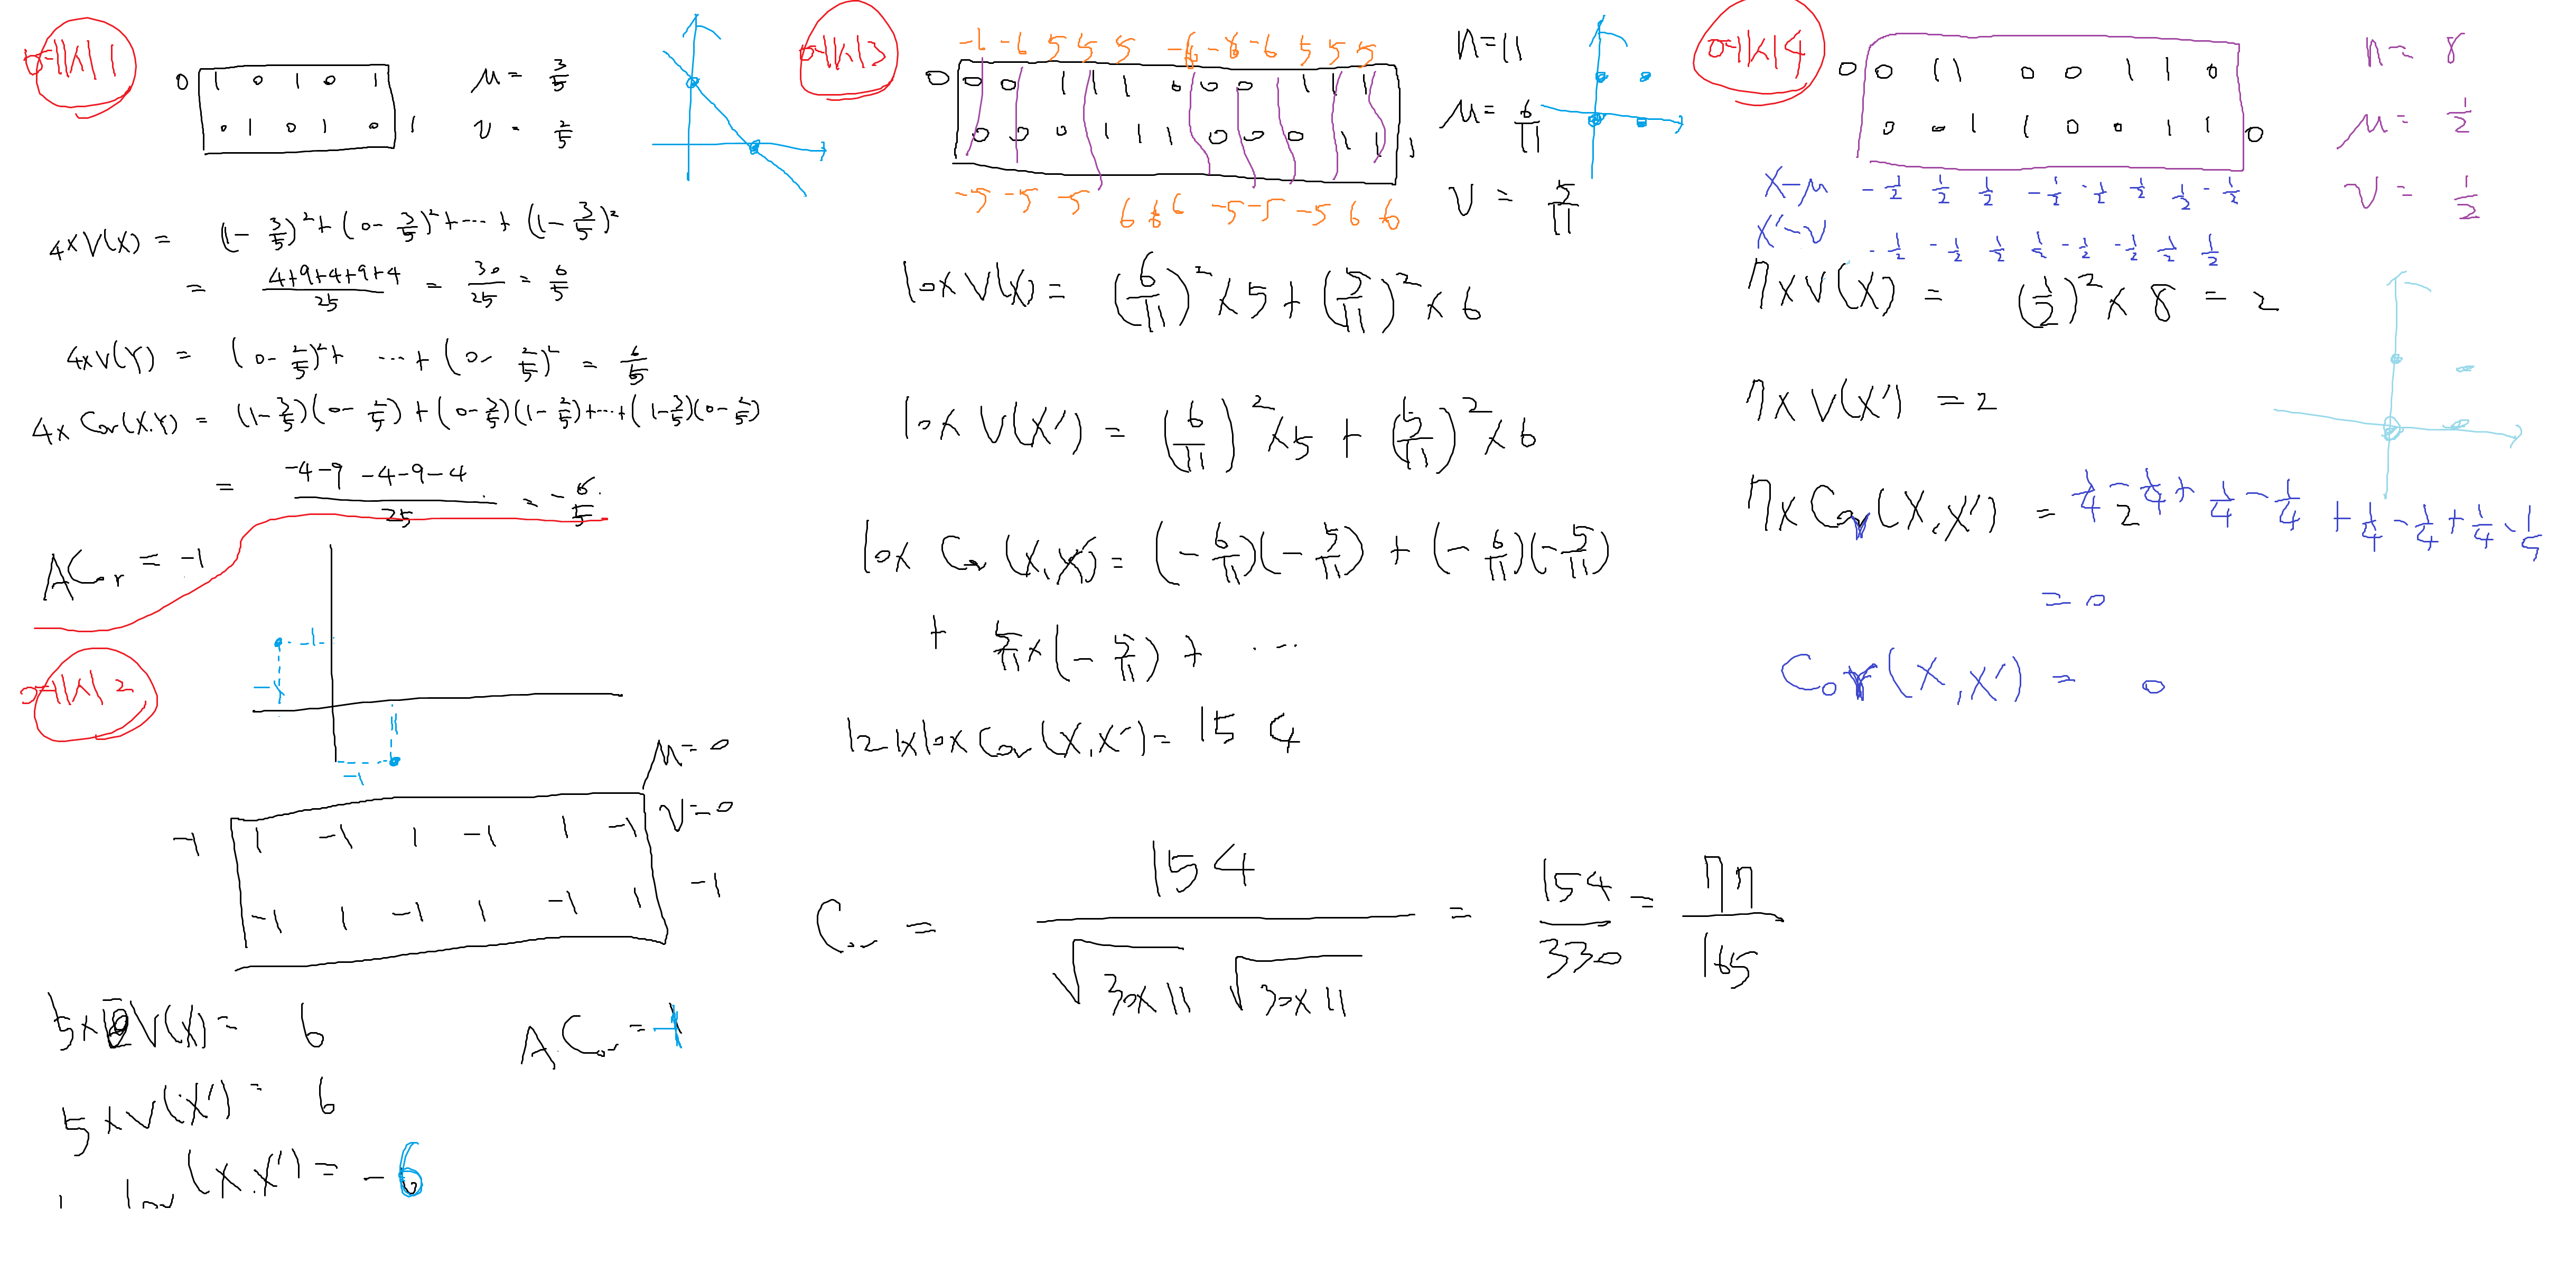 예제 1
0 1 0 1 0 1
0 1 0 1 0 1
μ = 3/5
ν = 2/5
4×V(X) = (1 - 3/5)² + (0 - 3/5)² + ... + (1 - 3/5)²
= (4+9+4+9+4)/25 = 30/25 = 6/5
4×V(Y) = (0 - 2/5)² + ... + (0 - 2/5)² = 6/5
4× Cov(X.Y) = (1-3/5)(0-2/5) + (0-3/5)(1-2/5) + ... + (1-3/5)(0-2/5)
= (-4-9 -4-9-4)/25 = -6/5.
ACor = -1
예제 2
-1
-1
-1
μ=0
ν=0
-1 1 -1 1 -1 1 -1
-1 1 -1 1 -1 1 -1
V(X) = 6
5×V(X') = 6
(X.X') = -6
ACor = -1
예제 3
-6 -6 5 5 5 -6 -6 -6 5 5 5
0 0 0 1 1 1 0 0 0 1 1 1
0 0 0 1 1 1 0 0 0 1 1 1
-5 -5 -5 6 6 6 -5 -5 -5 6 6
n=11
μ = 6/11
ν = 5/11
10×V(X) = (6/11)²×5 + (5/11)²×6
10×V(X') = (6/11)²×5 + (5/11)²×6
10× Cov(X,X') = (-6/11)(-5/11) + (-6/11)(-5/11)
+ 5/11×(-5/11) + ...
121×10×Cov(X,X') = 154
Cor = 154/(√30×11 √30×11) = 154/330 = 77/165
예제 4
0 0 1 1 0 0 1 1 0
0 0 1 1 0 0 1 1 0
n= 8
μ= 1/2
ν = 1/2
X-μ -1/2 1/2 1/2 -1/2 -1/2 1/2 1/2 -1/2
X'-ν -1/2 -1/2 1/2 1/2 -1/2 -1/2 1/2 1/2
7×V(X) = (1/2)² × 8 = 2
7×V(X') = 2
7×Cov(X,X') = 1/4 - 1/4 + 1/4 - 1/4 + 1/4 - 1/4 + 1/4 - 1/4
= 0
Cor(X,X') = 0